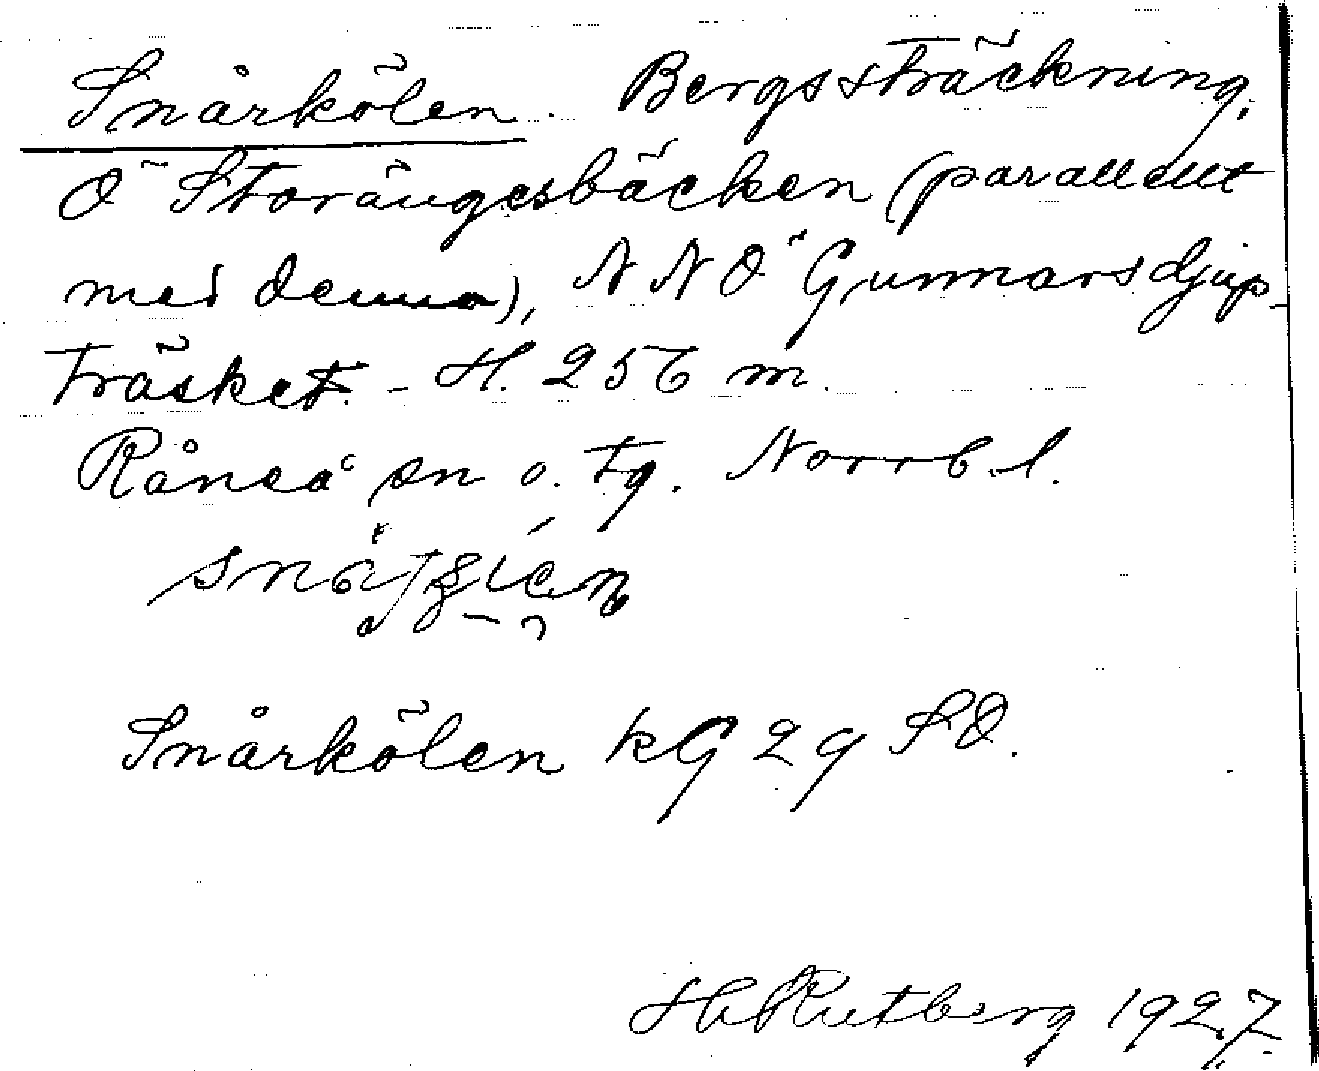 Snårkölen. Bergssträckning,
Ö Storängesbäcken (parallellt
med denna), NNÖ Gunnarsdjup-
träsket. - H. 256 m.
Råneå sn o. tg. Norrb. l.
Snårkölen kG 29 SO.
H Rutberg 1927.